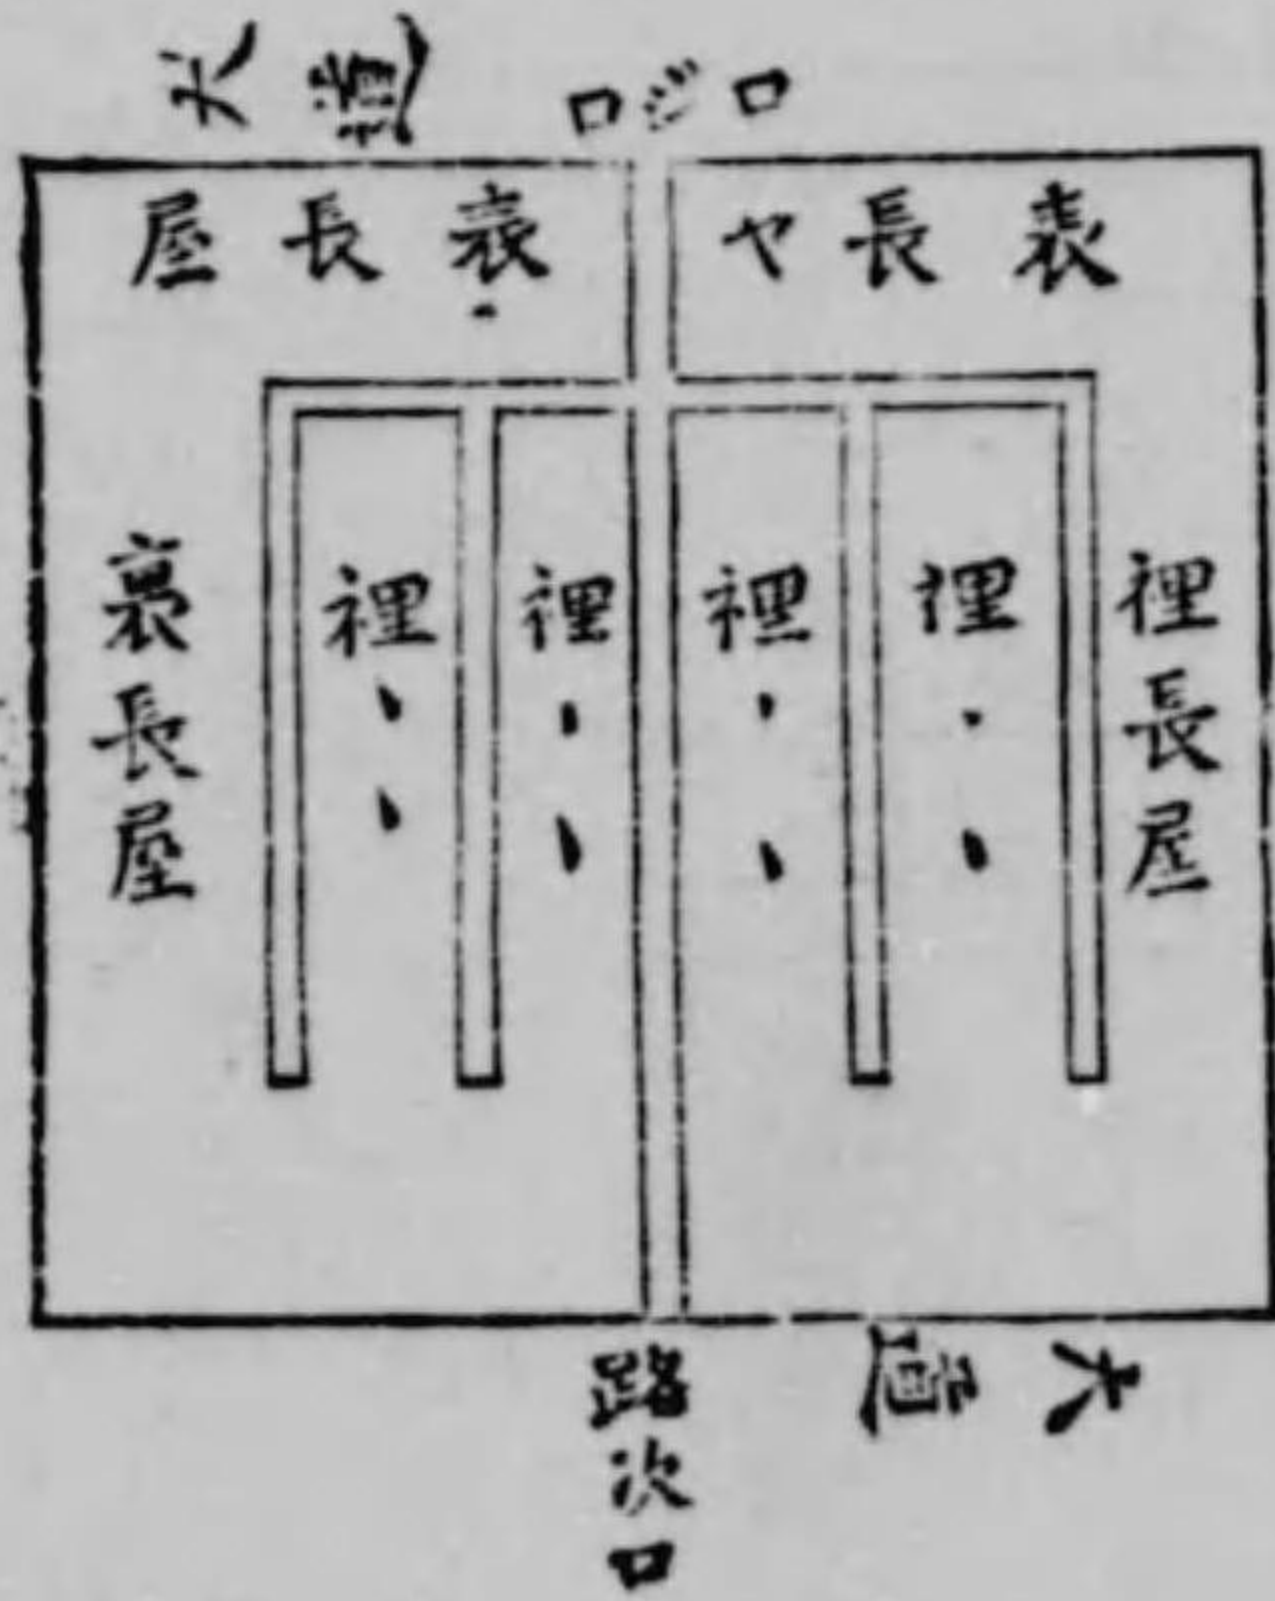 大道
ロジ口
表長ヤ
表長屋
裡長屋
裡、、
裡、、
裡、、
裡、、
裏長屋
大道
路次口